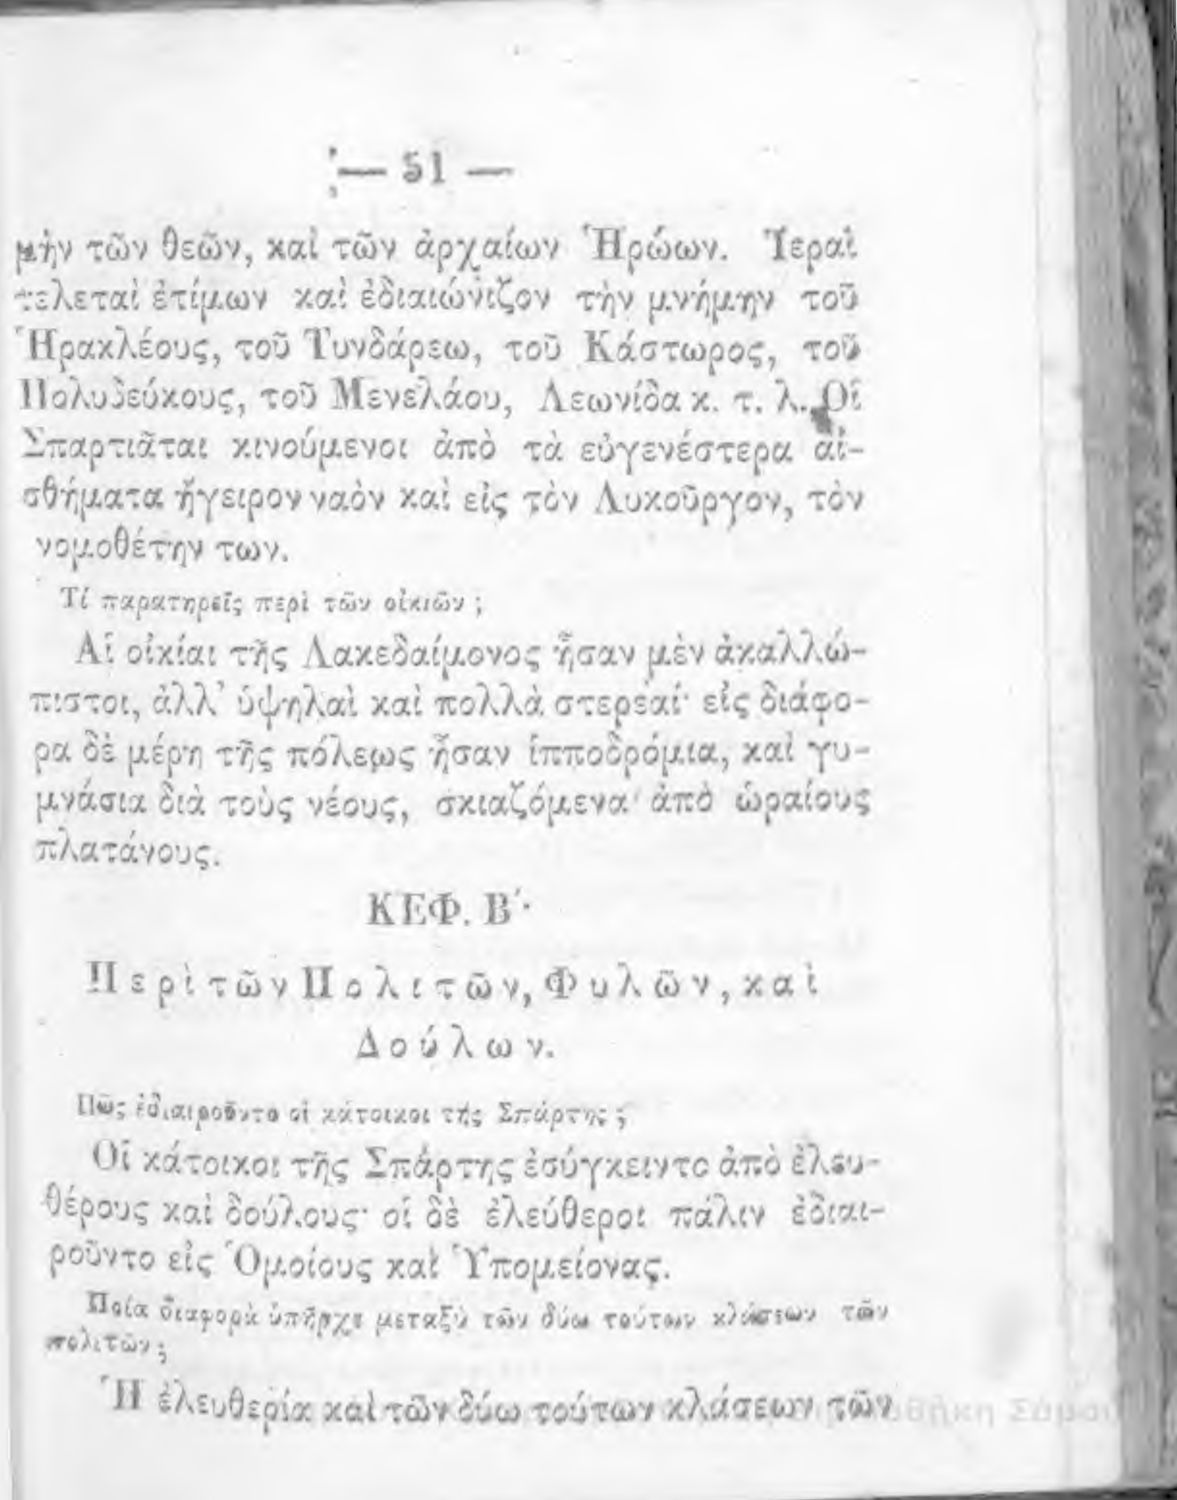 — 51 —
μὴν τῶν θεῶν, καὶ τῶν ἀρχαίων Ἡρώων. Ἱεραὶ
τελεταὶ ἐτίμων καὶ ἐδιαιώνιζον τὴν μνήμην τοῦ
Ἡρακλέους, τοῦ Τυνδάρεω, τοῦ Κάστωρος, τοῦ
Πολυδεύκους, τοῦ Μενελάου, Λεωνίδα κ. τ. λ. Οἱ
Σπαρτιᾶται κινούμενοι ἀπὸ τὰ εὐγενέστερα αἰ-
σθήματα ἤγειρον ναὸν καὶ εἰς τὸν Λυκοῦργον, τὸν
νομοθέτην των.
Τί παρατηρεῖς περὶ τῶν οἰκιῶν ;
Αἱ οἰκίαι τῆς Λακεδαίμονος ἦσαν μὲν ἀκαλλώ-
πιστοι, ἀλλ’ ὑψηλαὶ καὶ πολλὰ στερεαί· εἰς διάφο-
ρα δὲ μέρη τῆς πόλεως ἦσαν ἱπποδρόμια, καὶ γυ-
μνάσια διὰ τοὺς νέους, σκιαζόμενα ἀπὸ ὡραίους
πλατάνους.
ΚΕΦ. Β΄.
Περὶ τῶν Πολιτῶν, Φυλῶν, καὶ
Δούλων.
Πῶς ἐδιαιροῦντο οἱ κάτοικοι τῆς Σπάρτης ;
Οἱ κάτοικοι τῆς Σπάρτης ἐσύγκειντο ἀπὸ ἐλευ-
θέρους καὶ δούλους· οἱ δὲ ἐλεύθεροι πάλιν ἐδιαι-
ροῦντο εἰς Ὁμοίους καὶ Ὑπομείονας.
Ποία διαφορὰ ὑπῆρχε μεταξὺ τῶν δύω τούτων κλάσεων τῶν
πολιτῶν ;
Ἡ ἐλευθερία καὶ τῶν δύω τούτων κλάσεων τῶν
Σάμου